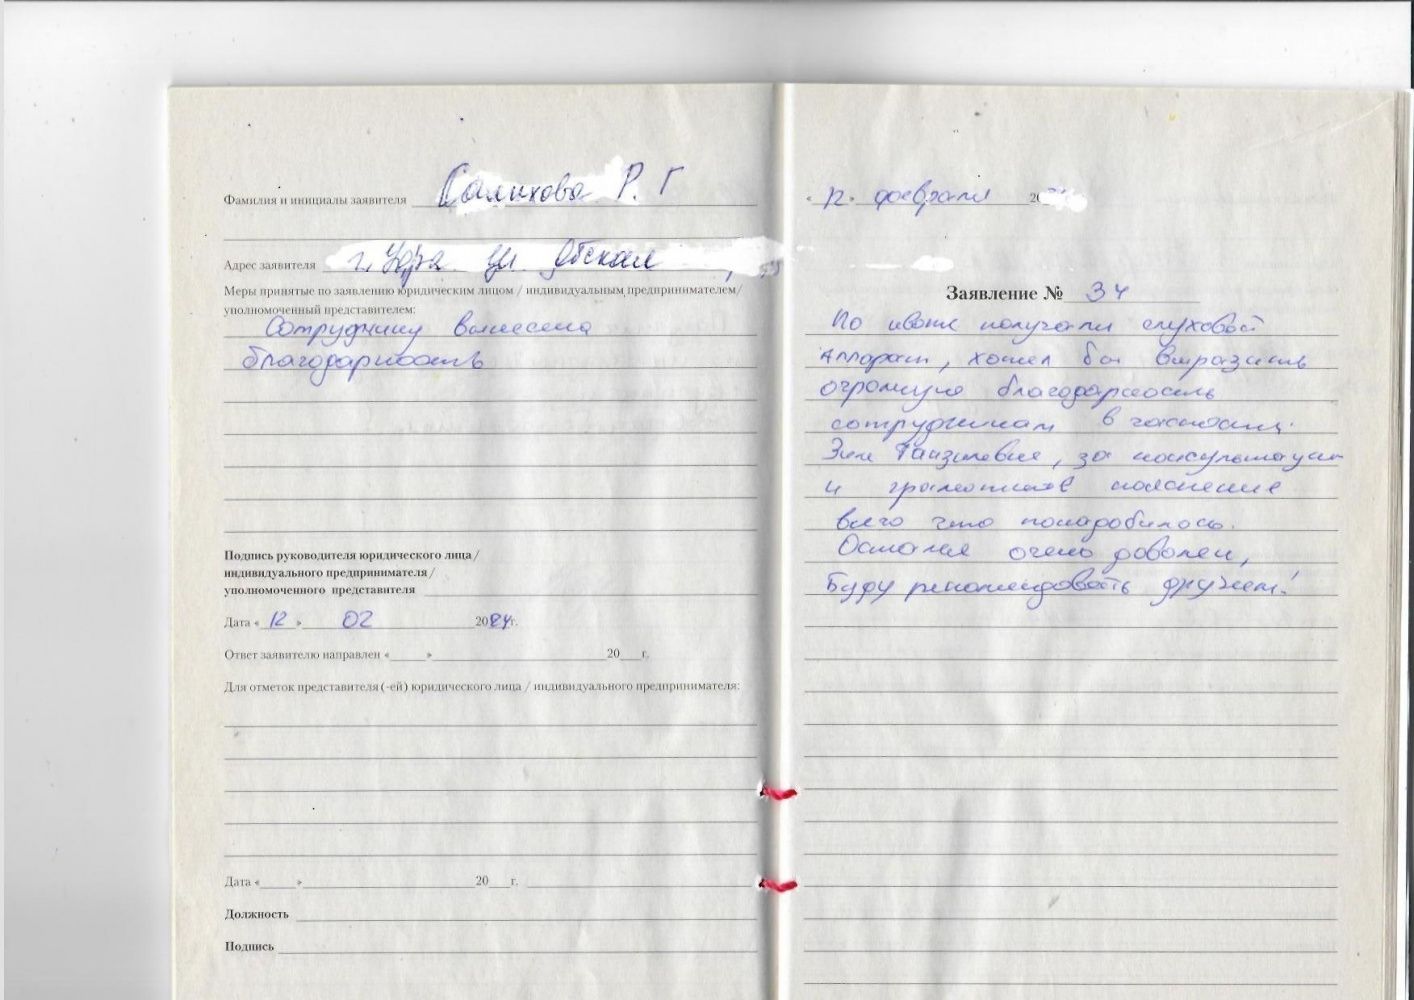 Фамилия и инициалы заявителя Салихова Р. Г
Адрес заявителя г. Уфа ул. Обская
Меры принятые по заявлению юридическим лицом / индивидуальным предпринимателем/
уполномоченный представителем:
Сотруднику вынесена
благодарность
Подпись руководителя юридического лица/
индивидуального предпринимателя/
уполномоченного представителя
Дата « 12 » 02 2024г.
Ответ заявителю направлен « » 20 г.
Для отметок представителя (-ей) юридического лица / индивидуального предпринимателя:
Дата « » 20 г.
Должность
Подпись
« 12 » февраля 20
Заявление № 34
По ипотк получали слуховой
Аппарат, хотел бы выразить
огромную благодарность
сотрудникам в частности
Зиле, за консультацию
и грамотное пояснение
всего что понадобилось.
Остался очень доволен,
Буду рекомендовать друзьям!